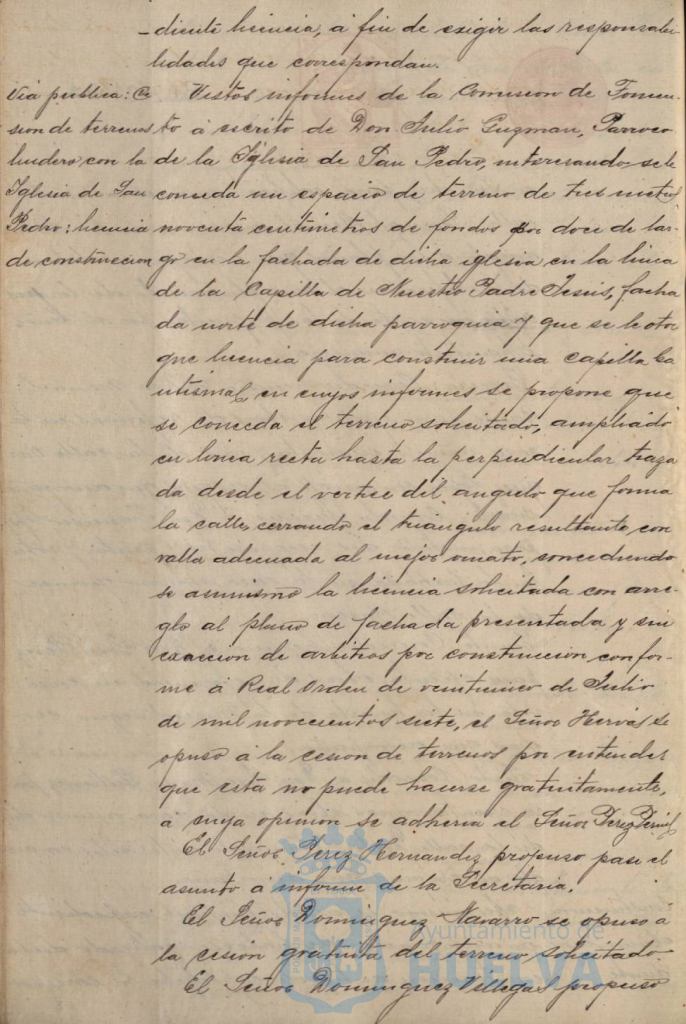 -diente licencia, á fin de exigir las responsabi-
lidades que correspondan.
Via publica: Ce
sion de terrenos
lindero con la
Iglesia de San
Pedro: licencia
de construccion
Vistos informes de la Comision de Fomen-
to á escrito de Don Julio Guzman, Parroco
de la Iglesia de San Pedro, interesando se le
conceda un espacio de terreno de tres metros
noventa centimetros de fondos por doce de lar-
go en la fachada de dicha iglesia en la linea
de la Capilla de Nuestro Padre Jesús, facha
da norte de dicha parroquia y que se le otor
gue licencia para construir una capilla ba
utismal, en cuyos informes se propone que
se conceda el terreno solicitado, ampliado
en linea recta hasta la perpendicular traza
da desde el vertice del angulo que forma
la calle, cerrando el triángulo resultante con
valla adecuada al mejor ornato, concediendo
se asimismo la licencia solicitada con arre-
glo al plano de fachada presentada y sin
exaccion de arbitros por construccion confor-
me á Real Orden de veinticinco de Julio
de mil novecientos siete, el Señor Hervás se
opuso á la cesion de terrenos por entender
que esta no puede hacerse gratuitamente,
á cuya opinion se adheria el Señor Perez
El Señor Perez Hernandez propuso pase el
asunto á informe de la Secretaria.
El Señor Dominguez Navarro se opuso á
la cesión gratuita del terreno solicitado.
El Señor Dominguez Villegas propuso
Ayuntamiento de
HUELVA